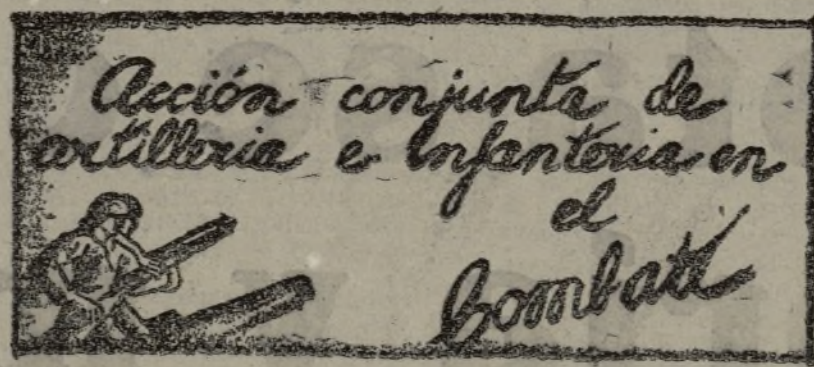 Acción conjunta de
artilleria e Infanteria en
el
Combate